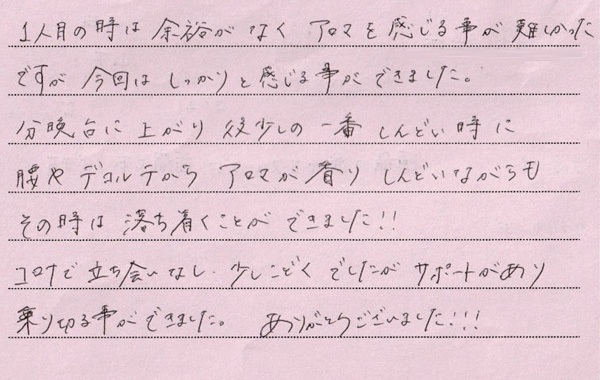 1人目の時は 余裕がなく アロマを感じる事が難しかった
ですが 今回は しっかりと感じる事ができました。
分娩台に 上がり 後少しの 一番 しんどい時に
腰や デコルテから アロマが 香り しんどいながらも
その時は 落ち着くことが できました!!
コロナで 立ち会いなし、少しこどく でしたが サポートがあり
乗り切る事ができました。 ありがとうございました!!!